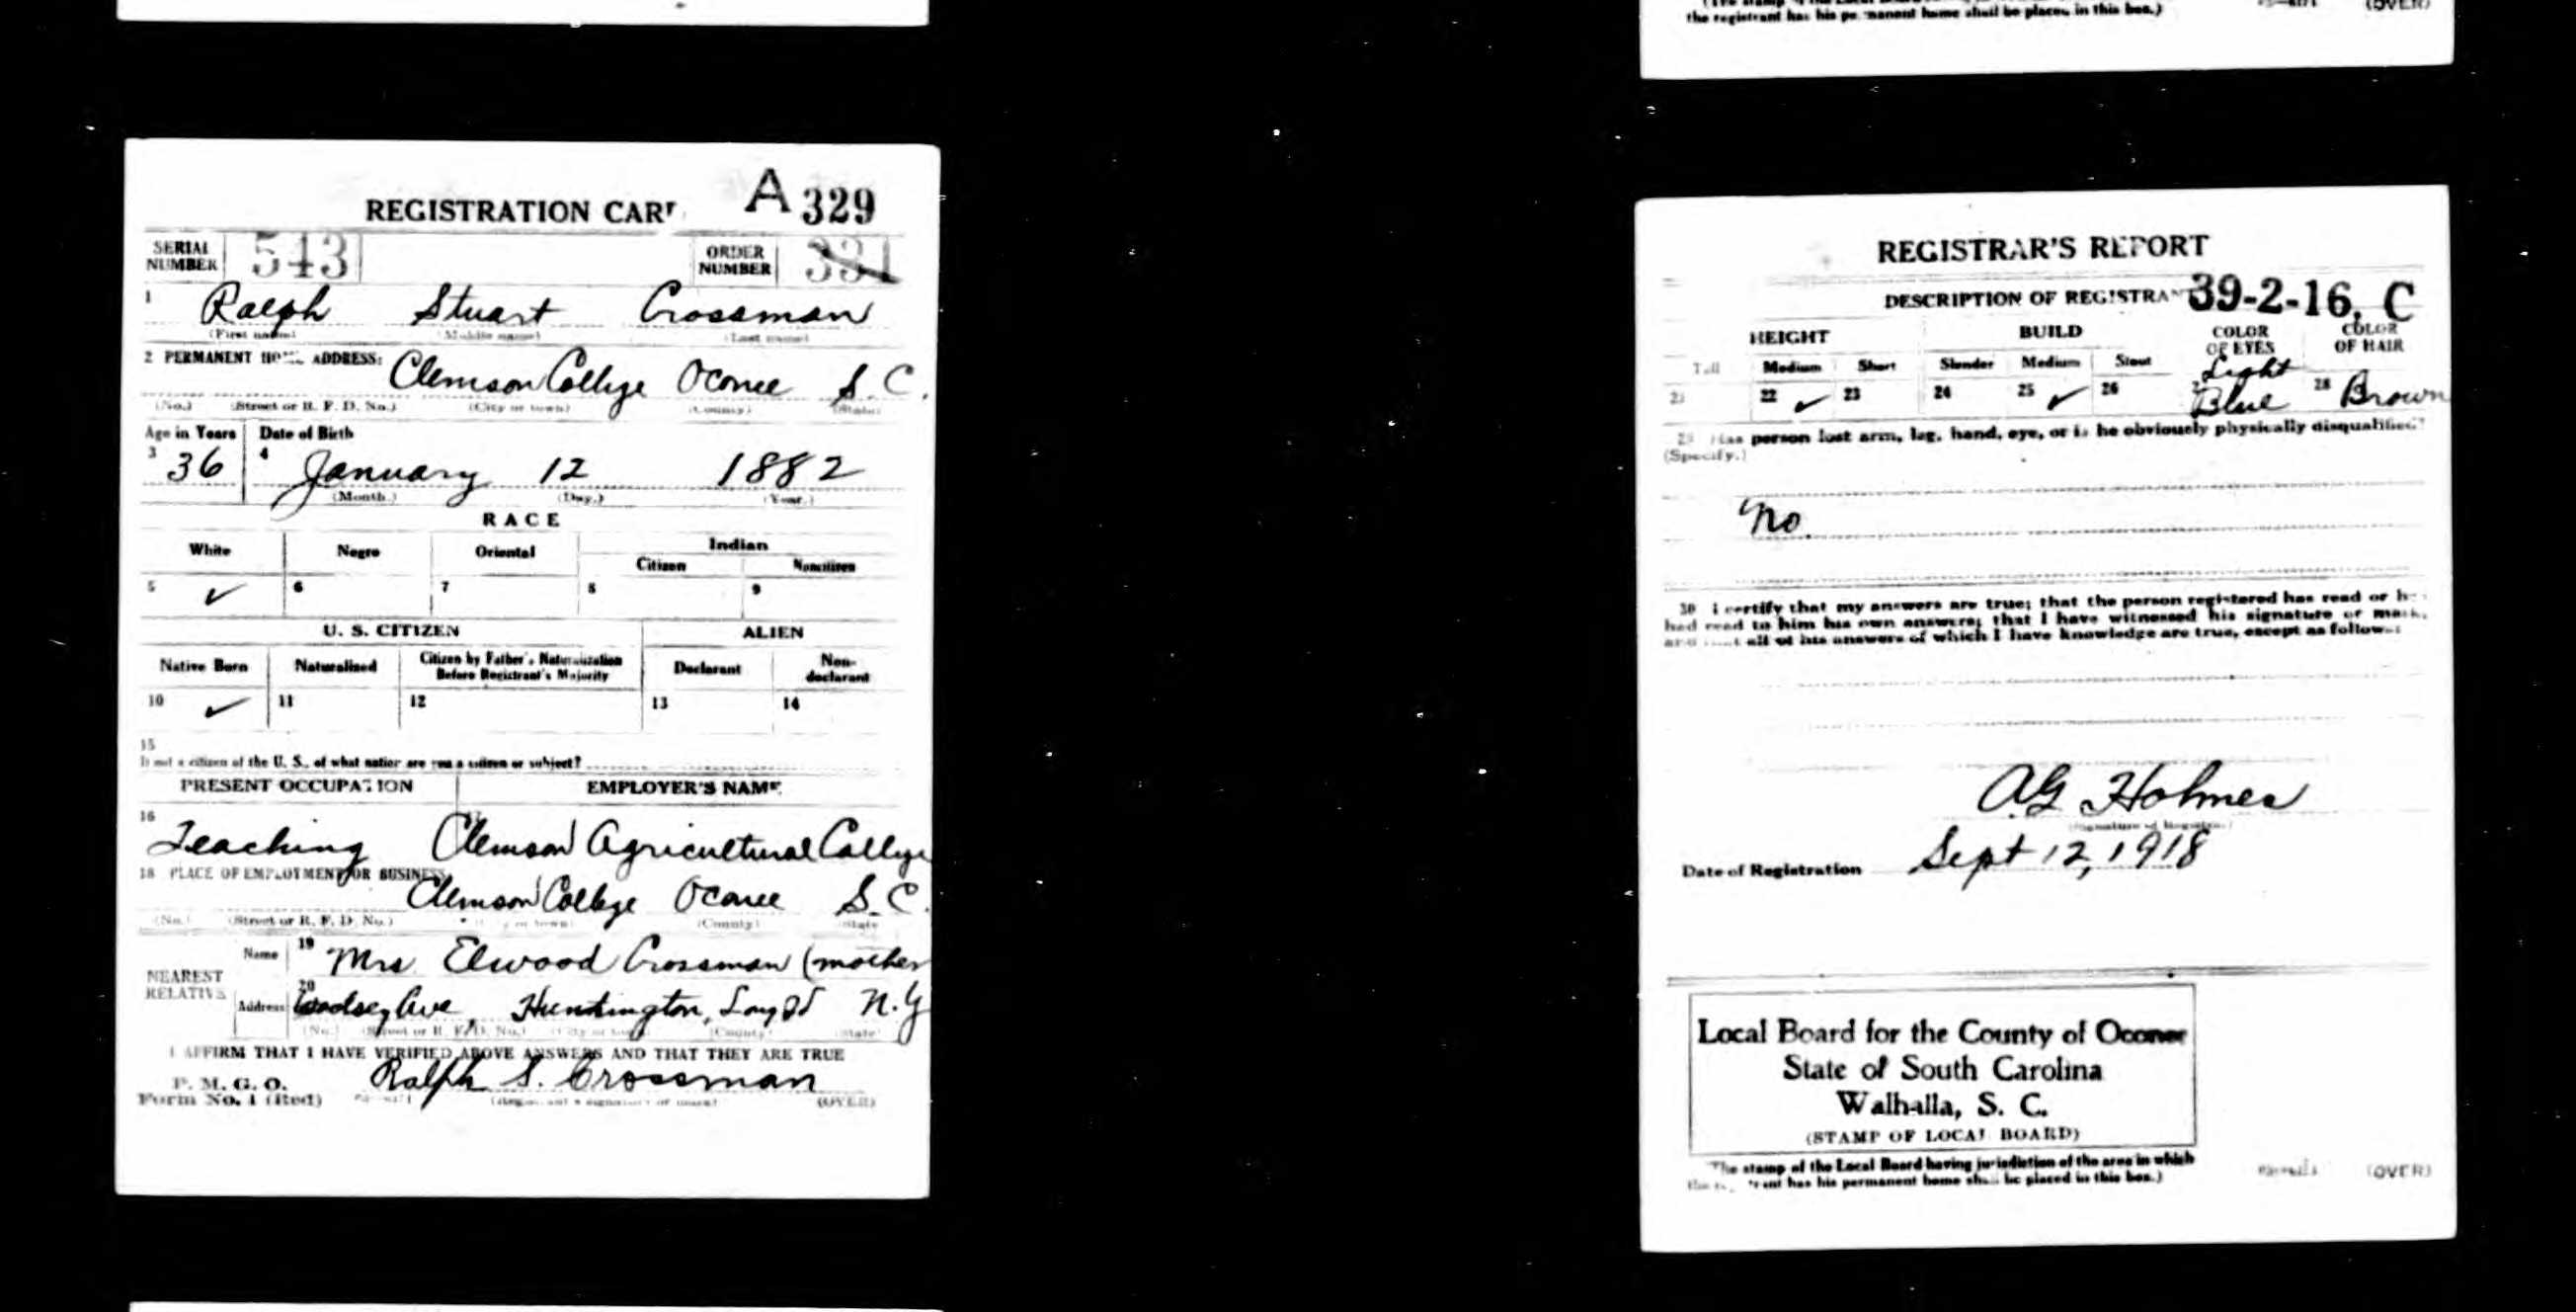 the registrant has his permanent home shall be placed in this box.)
(OVER)
REGISTRATION CARD A 329
SERIAL NUMBER 543 ORDER NUMBER 331
1 Ralph Stuart Crossman
(First name) (Middle name) (Last name)
2 PERMANENT HOME ADDRESS: Clemson College Oconee S. C.
(No.) (Street or R. F. D. No.) (City or town) (County) (State)
Age in Years Date of Birth
3 36 4 January 12 1882
(Month.) (Day.) (Year.)
RACE
White Negro Oriental Indian
Citizen Noncitizen
5 ✓ 6 7 8 9
U. S. CITIZEN ALIEN
Native Born Naturalized Citizen by Father's Naturalization Before Registrant's Majority Declarant Non-declarant
10 ✓ 11 12 13 14
15
If not a citizen of the U. S., of what nation are you a citizen or subject?
PRESENT OCCUPATION EMPLOYER'S NAME
16 Teaching Clemson Agricultural College
18 PLACE OF EMPLOYMENT OR BUSINESS
Clemson College Oconee S. C.
(No.) (Street or R. F. D. No.) (City or town) (County) (State)
NEAREST RELATIVE
Name 19 Mrs Elwood Crossman (mother
Address 20 Ave, Huntington, Long Isl N.Y
(No.) (Street or R. F. D. No.) (City or town) (County) (State)
I AFFIRM THAT I HAVE VERIFIED ABOVE ANSWERS AND THAT THEY ARE TRUE
P. M. G. O.
Form No. 1 (Red) Ralph S. Crossman
(Registrant's signature or mark) (OVER)
REGISTRAR'S REPORT
39-2-16, C
DESCRIPTION OF REGISTRANT
HEIGHT BUILD COLOR OF EYES COLOR OF HAIR
Tall Medium Short Slender Medium Stout
21 22 ✓ 23 24 25 ✓ 26 27 Light Blue 28 Brown
29 Has person lost arm, leg, hand, eye, or is he obviously physically disqualified?
(Specify.)
No
30 I certify that my answers are true; that the person registered has read or has
had read to him his own answers; that I have witnessed his signature or mark,
and that all of his answers of which I have knowledge are true, except as follows:
A.G Holmes
(Signature of Registrar)
Date of Registration Sept 12, 1918
Local Board for the County of Oconee
State of South Carolina
Walhalla, S. C.
(STAMP OF LOCAL BOARD)
(The stamp of the Local Board having jurisdiction of the area in which
the registrant has his permanent home shall be placed in this box.)
(OVER)